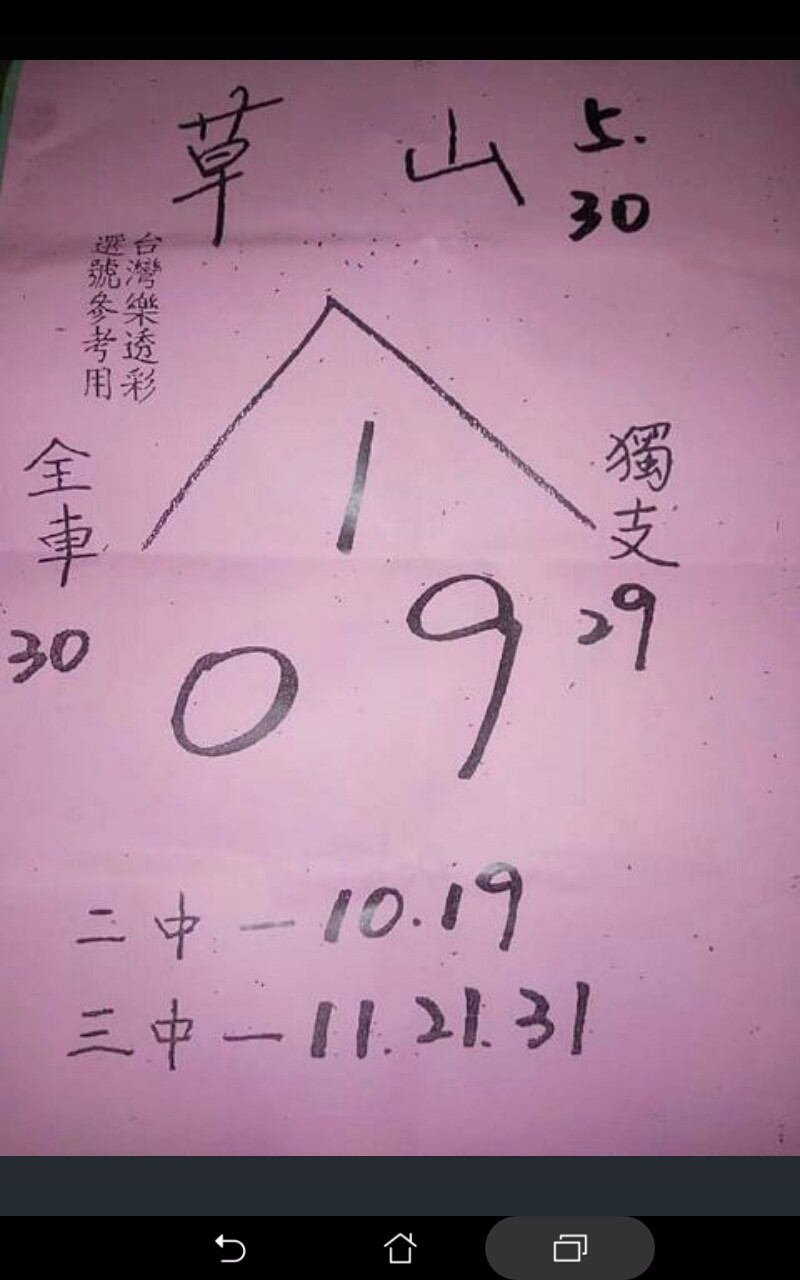 草山 5.
30
台灣樂透彩
選號參考用
全車
30
獨支
29
1
0 9
二中一10.19
三中一11.21.31